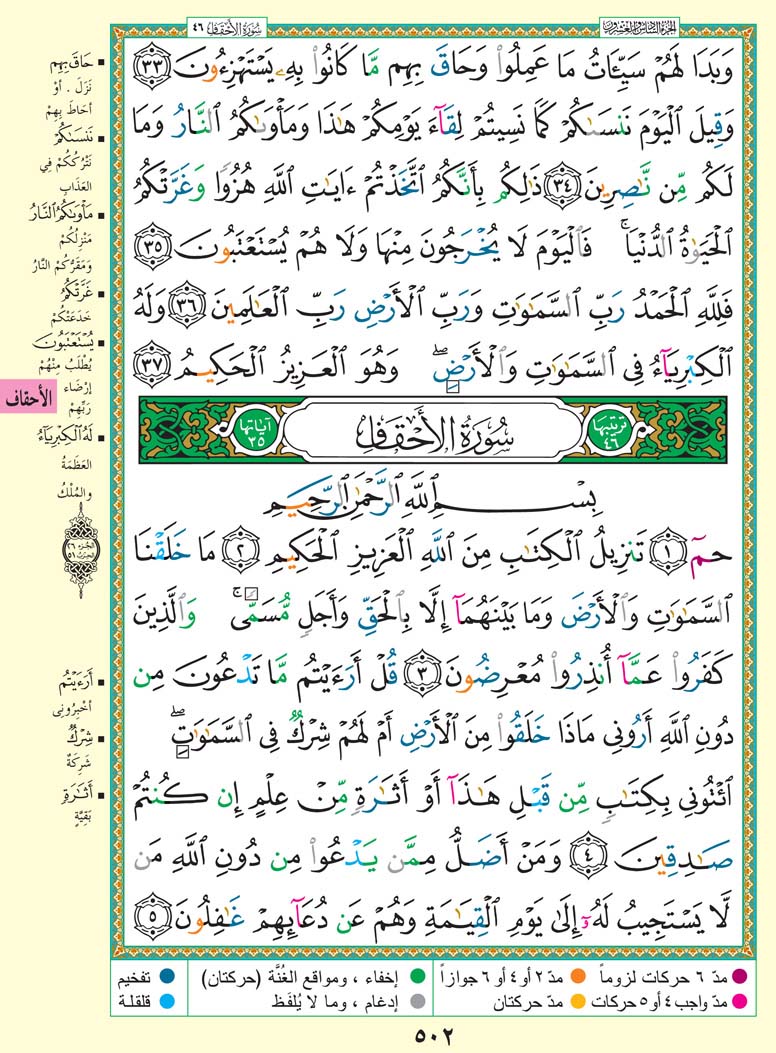 الجزء السادس والعشرون
سورة الأحقاف ٤٦
وَبَدَا لَهُمْ سَيِّـَٔاتُ مَا عَمِلُوا۟ وَحَاقَ بِهِم مَّا كَانُوا۟ بِهِۦ يَسْتَهْزِءُونَ ٣٣
وَقِيلَ ٱلْيَوْمَ نَنسَىٰكُمْ كَمَا نَسِيتُمْ لِقَآءَ يَوْمِكُمْ هَٰذَا وَمَأْوَىٰكُمُ ٱلنَّارُ وَمَا
لَكُم مِّن نَّٰصِرِينَ ٣٤ ذَٰلِكُم بِأَنَّكُمُ ٱتَّخَذْتُمْ ءَايَٰتِ ٱللَّهِ هُزُوًا وَغَرَّتْكُمُ
ٱلْحَيَوٰةُ ٱلدُّنْيَا ۚ فَٱلْيَوْمَ لَا يُخْرَجُونَ مِنْهَا وَلَا هُمْ يُسْتَعْتَبُونَ ٣٥
فَلِلَّهِ ٱلْحَمْدُ رَبِّ ٱلسَّمَٰوَٰتِ وَرَبِّ ٱلْأَرْضِ رَبِّ ٱلْعَٰلَمِينَ ٣٦ وَلَهُ
ٱلْكِبْرِيَآءُ فِى ٱلسَّمَٰوَٰتِ وَٱلْأَرْضِ ۖ وَهُوَ ٱلْعَزِيزُ ٱلْحَكِيمُ ٣٧
ترتيبها ٤٦
سورة الأحقاف
آياتها ٣٥
بِسْمِ ٱللَّهِ ٱلرَّحْمَٰنِ ٱلرَّحِيمِ
حمٓ ١ تَنزِيلُ ٱلْكِتَٰبِ مِنَ ٱللَّهِ ٱلْعَزِيزِ ٱلْحَكِيمِ ٢ مَا خَلَقْنَا
ٱلسَّمَٰوَٰتِ وَٱلْأَرْضَ وَمَا بَيْنَهُمَآ إِلَّا بِٱلْحَقِّ وَأَجَلٍ مُّسَمًّى ۚ وَٱلَّذِينَ
كَفَرُوا۟ عَمَّآ أُنذِرُوا۟ مُعْرِضُونَ ٣ قُلْ أَرَءَيْتُم مَّا تَدْعُونَ مِن
دُونِ ٱللَّهِ أَرُونِى مَاذَا خَلَقُوا۟ مِنَ ٱلْأَرْضِ أَمْ لَهُمْ شِرْكٌ فِى ٱلسَّمَٰوَٰتِ ۖ
ٱئْتُونِى بِكِتَٰبٍ مِّن قَبْلِ هَٰذَآ أَوْ أَثَٰرَةٍ مِّنْ عِلْمٍ إِن كُنتُمْ
صَٰدِقِينَ ٤ وَمَنْ أَضَلُّ مِمَّن يَدْعُوا۟ مِن دُونِ ٱللَّهِ مَن
لَّا يَسْتَجِيبُ لَهُۥٓ إِلَىٰ يَوْمِ ٱلْقِيَٰمَةِ وَهُمْ عَن دُعَآئِهِمْ غَٰفِلُونَ ٥
حَاقَ بِهِم
نَزَلَ . أوْ
أحَاطَ بِهِمْ
نَنسَىٰكُمْ
نَتْرُكُكُمْ فِي
العَذَابِ
مَأْوَىٰكُمُ ٱلنَّارُ
مَنْزِلُكُمْ
وَمَقَرُّكُمُ النَّارُ
غَرَّتْكُمُ
خَدَعَتْكُمْ
يُسْتَعْتَبُونَ
يُطْلَبُ مِنْهُمْ
إرْضَاء
رَبِّهِمْ
لَهُ ٱلْكِبْرِيَآءُ
العَظَمَةُ
والمُلْكُ
الأحقاف
الجزء ٢٦
الحزب ٥١
أَرَءَيْتُم
أخْبِرُونِى
شِرْكٌ
شَرِكَةٌ
أَثَٰرَةٍ
بَقِيَّةٍ
مدّ ٦ حركات لزوماً
مدّ ٢ أو ٤ أو ٦ جوازاً
إخفاء ، ومواقع الغُنَّة (حركتان)
تفخيم
مدّ واجب ٤ أو ٥ حركات
مدّ حركتان
إدغام ، وما لا يُلفَظ
قلقلة
٥٠٢